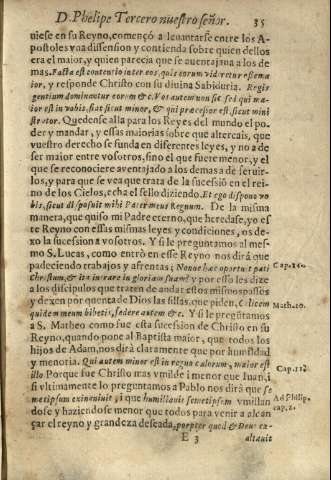 D. Phelipe Tercero nuestro señor. 35
uiese en su Reyno, começó a leuantarse entre los A-
postoles vna dissension y contienda sobre quien dellos
era el maior, y quien parecia que se auentajaua a los de
mas. Facta est contentio inter eos, quis eorum videretur esse ma
ior, y responde Christo con su diuina Sabiduria. Reges
gentium dominantur eorum &c. Vos autem non sic sed qui ma-
ior est in vobis, fiat sicut minor, & qui præcessor est, sicut mini
strator. Quedense alla para los Reyes del mundo el po
der y mandar, y essas maiorias sobre que altercais, que
vuestro derecho se funda en diferentes leyes, y no a de
ser maior entre vosotros, sino el que fuere menor, y el
que se reconociere aventajado a los demas a de seruir-
los, y para que se vea que trata de la sucessiõ en el rei-
no de los Cielos, echa el sello diziendo. Et ego dispono vo
bis, sicut disposuit mihi Pater meus Regnum. De la misma
manera, que quiso mi Padre eterno, que heredase, yo es
te Reyno con essas mismas leyes y condiciones, os de-
xo la sucession a vosotros. Y si le preguntamos al mes-
mo S. Lucas, como entrò en esse Reyno nos dirà que
padeciendo trabajos y afrentas; Nonne hæc oportuit pati
Christum, & ita intrare in gloriam suam? y por esso les dize
a los discipulos que traten de andar estos mismos passos
y dexen por quenta de Dios las sillas, que piden, Calicem
quidem meum bibetis, sedere autem &c. Y si le preguntamos
a S. Matheo como fue esta sucession de Christo en su
Reyno, quando pone al Baptista maior, que todos los
hijos de Adam, nos dirà claramente que por humildad
y menoria. Qui autem minor est in regno cælorum, maior est
illo Porque fue Christo mas vmilde i menor que Juan, i
si vltimamente lo preguntamos a Pablo nos dirà que se
metipsum exinaniuit, i que humiliauit semetipsum vmillan
dose y haziendose menor que todos para venir a alcan
çar el reyno y grandeza deseada, propter quod & Deus ex-
E 3 altauit
Cap. 24.
Math. 20.
Cap. 11.
Ad Philip.
cap. 2.